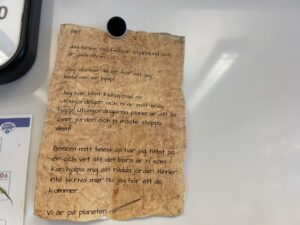 Hej!
Jag heter professor Stjärnlund och
är astronom.
Jag skriver till er för att jag
behöver er hjälp!
Jag har blivit kidnappad av
utomjordingar och ni är mitt enda
hopp! Utomjordingarna planerar att ta
över jorden och ni måste stoppa
dem!
Genom mitt teleskop har jag tittat på
er och vet att det bara är ni som
kan hjälpa mig att rädda jorden. Hinner
inte skriva mer nu, jag hör att de
kommer.
Vi är på planeten